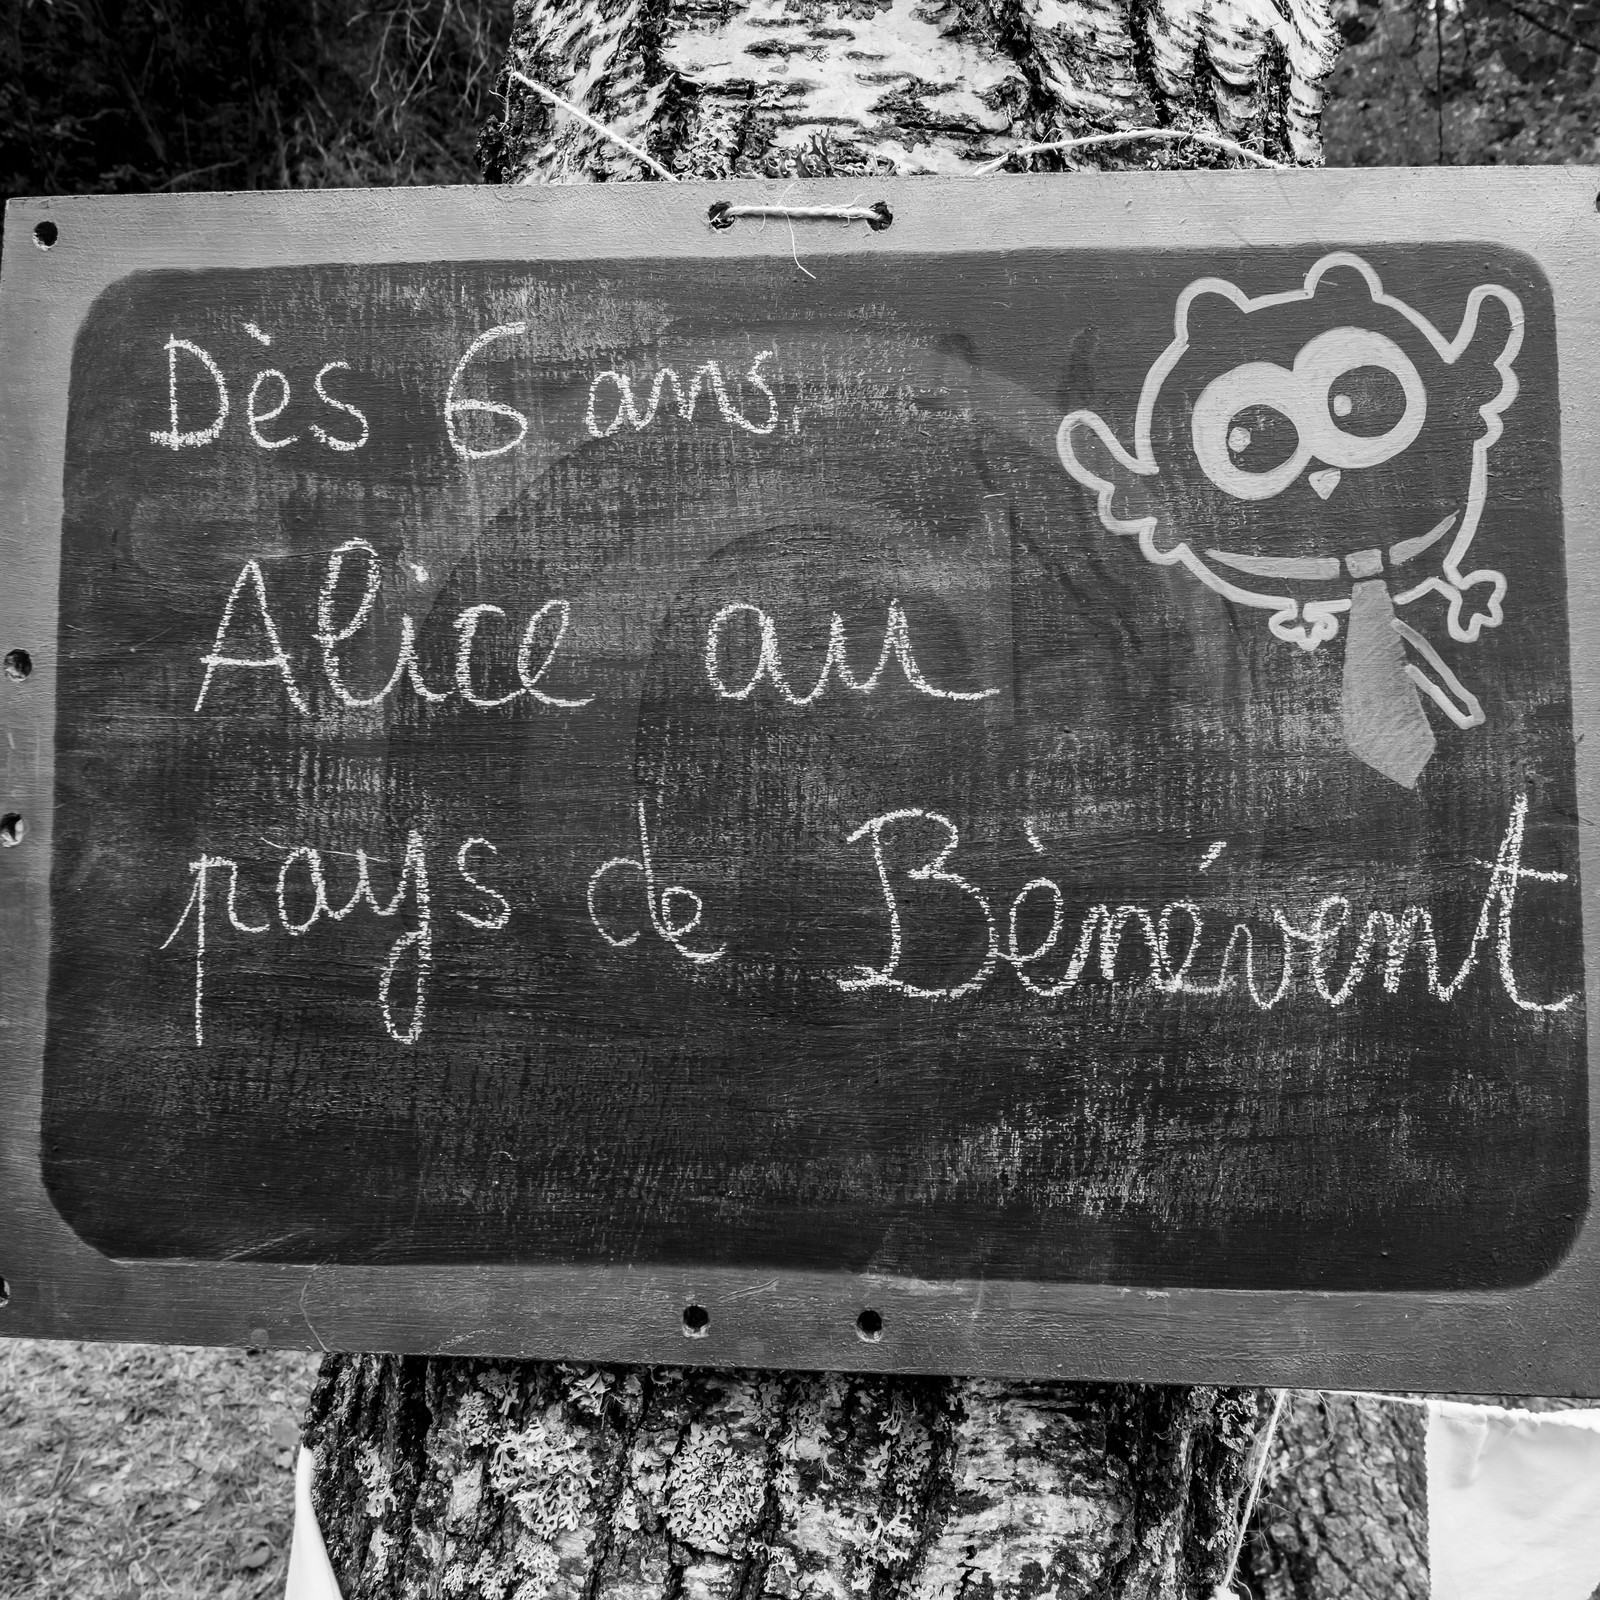 Dès 6 ans.
Alice au
pays de Bènévent